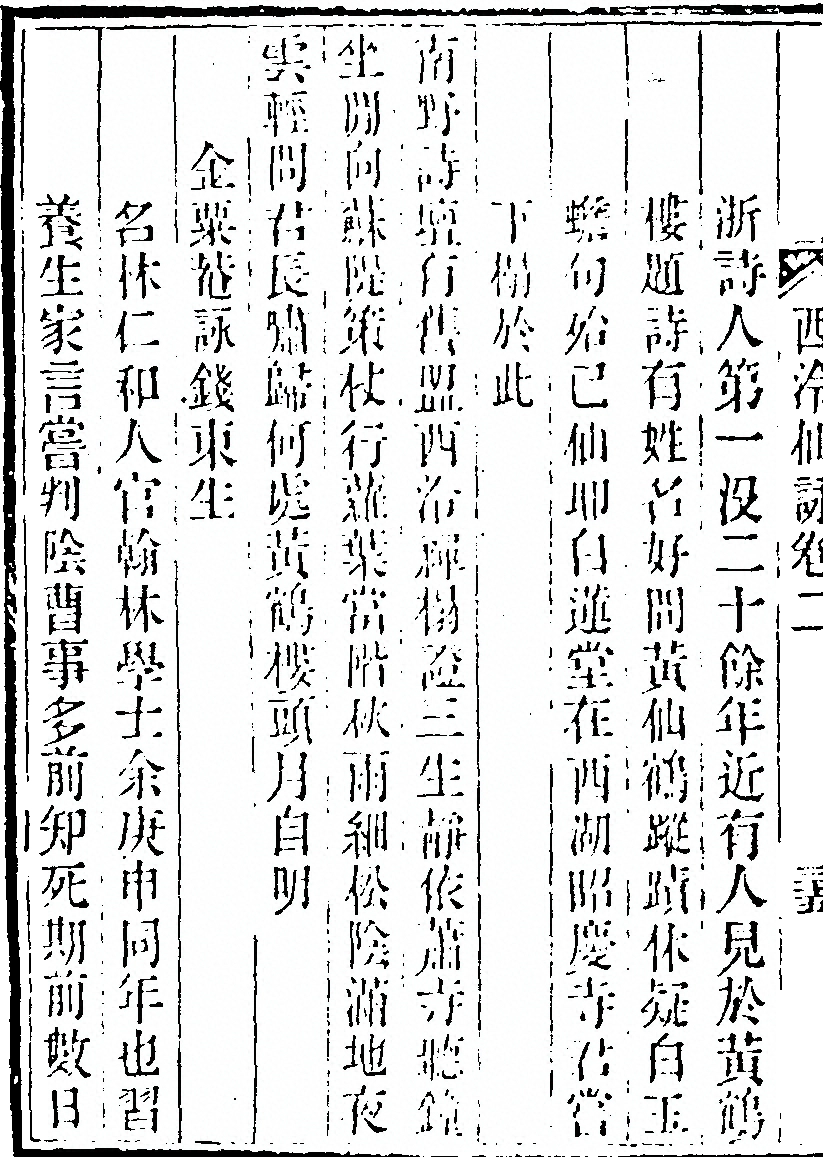 西泠仙詠卷二
浙詩人第一沒二十餘年近有人見於黃鶴
樓題詩有姓名好問黃仙鶴蹤蹟休疑白玉
蟾句殆已仙耶白蓮堂在西湖昭慶寺君嘗
下榻於此
南野詩壇有舊盟西泠禪榻證三生靜依蕭寺聽鐘
坐閒向蘇隄策杖行蘿葉當階秋雨細松陰滿地夜
雲輕問君長嘯歸何處黃鶴樓頭月自明
金粟菴詠錢東生
名林仁和人官翰林學士余庚申同年也習
養生家言嘗判陰曹事多前知死期前數日